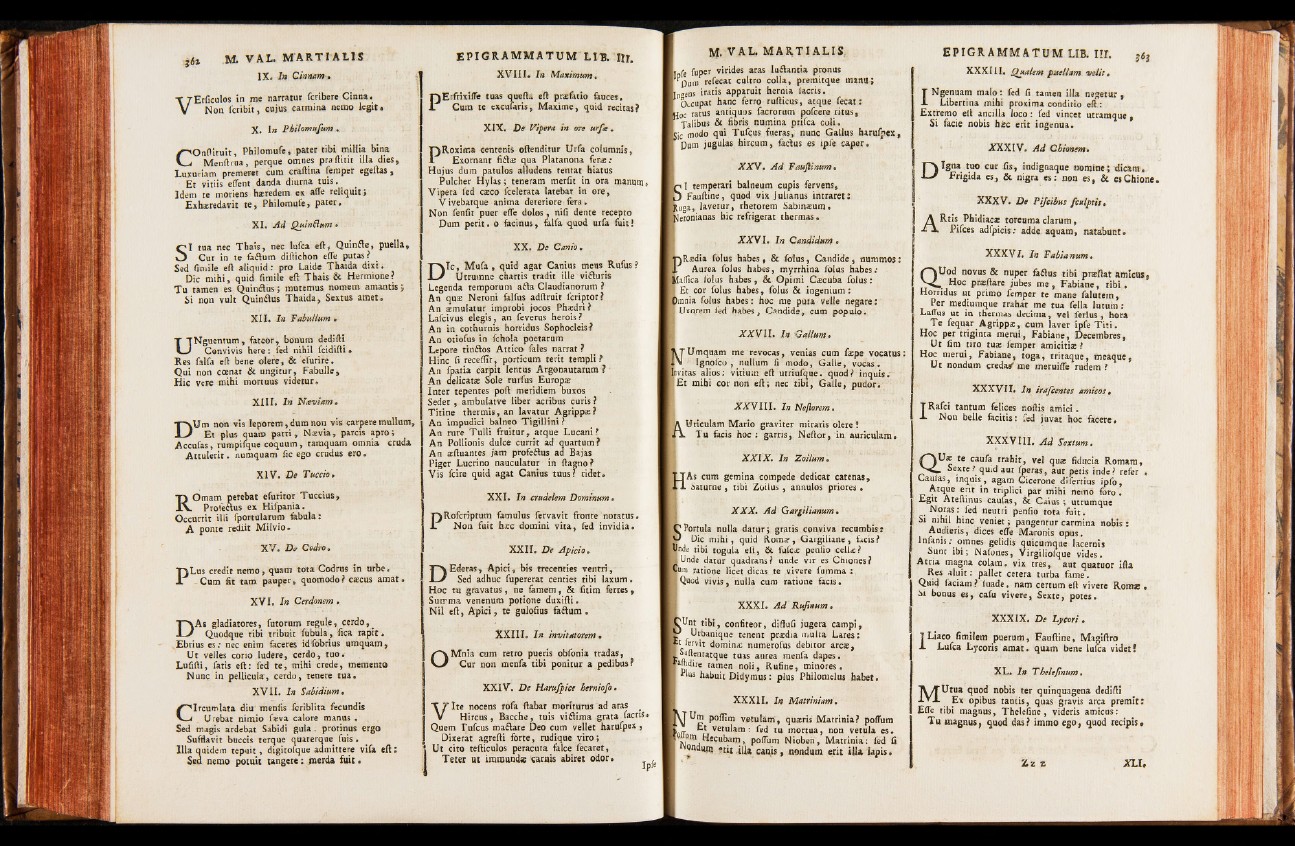 362 M. VAL. MARTIALIS
IX. In Cinnam.
VErſiculos in me narratur ſcribere Cinna.
Non ſcribit, cujus carmina nemo legit.
X. In Philomuſum.
COnſtituit, Philomuſe, pater tibi millia bina
Menſtrua, perque omnes præſtitit illa dies,
Luxuriam premeret cum craſtina ſemper egeſtas,
Et vitiis eſſent danda diurna tuis.
Idem te moriens hæredem ex aſſe reliquit;
Exhæredavit te, Philomuſe, pater.
XI. Ad Quinctum.
SI tua nec Thais, nec luſca eſt, Quincte, puella,
Cur in te factum diſtichon eſſe putas?
Sed ſimile eſt aliquid: pro Laide Thaida dixi.
Dic mihi, quid ſimile eſt Thais & Hermione?
Tu tamen es Quinctus; mutemus nomem amantis;
Si non vult Quinctus Thaida, Sextus amet.
XII. In Fabullum.
UNguentum, fateor, bonum dediſti
Convivis here: ſed nihil ſcidiſti.
Res ſalſa eſt bene olere, & eſurire.
Qui non cœnat & ungitur, Fabulle,
Hic vere mihi mortuus videtur.
XIII. In Næviam.
DUm non vis leporem, dum non vis carpere mullum,
Et plus quam patri, Nævia, parcis apro;
Accuſas, rumpiſque coquum, tamquam omnia cruda
Attulerit. numquam ſic ego crudus ero.
XIV. De Tuccio.
ROmam petebat eſuritor Tuccius,
Profectus ex Hiſpania.
Occurrit illi ſportularum fabula:
A ponte rediit Milvio.
XV. De Codro.
PLus credit nemo, quam tota Codrus in urbe.
Cum ſit tam pauper, quomodo? cæcus amat.
XVI. In Cerdonem.
DAs gladiatores, ſutorum regule, cerdo,
Quodque tibi tribuit ſubula, ſica rapit.
Ebrius es: nec enim faceres id ſobrius umquam,
Ut velles corio ludere, cerdo, tuo.
Luſiſti, ſatis eſt: ſed te, mihi crede, memento
Nunc in pellicula, cerdo, tenere tua.
XVII. In Sabidium.
CIrcumlata diu menſis ſcriblita ſecundis
Urebat nimio ſæva calore manus.
Sed magis ardebat Sabidi gula. protinus ergo
Sufflavit buccis terque quaterque ſuis.
Illa quidem tepuit, digitoſque admittere viſa eſt:
Sed nemo potuit tangere: merda fuit.
EPIGRAMMATUM LIB. III.
XVIII. In Maximum.
PErfrixiſſe tuas queſta eſt præfatio fauces.
Cum te excuſaris, Maxime, quid recitas?
XIX. De Vipera in ore urſæ.
PRoxima centenis oſtenditur Urſa columnis,
Exornant fictæ qua Platanona feræ:
Hujus dum patulos alludens tentat hiatus
Pulcher Hylas; teneram merſit in ora manum,
Vipera ſed cæco ſcelerata latebat in ore,
Vivebatque anima deteriore fera.
Non ſenſit puer eſſe dolos, niſi dente recepto
Dum perit. o facinus, falſa quod urſa fuit!
XX. De Canio.
DIc, Muſa, quid agat Canius meus Rufus?
Utrumne chartis tradit ille victuris
Legenda temporum acta Claudianorum?
An quæ Neroni falſus adſtruit ſcriptor?
An æmulatur improbi jocos Phædri?
Laſcivus elegis, an ſeverus herois?
An in cothurnis horridus Sophocleis?
An otioſus in ſchola poetarum
Lepore tinctos Attico ſales narrat?
Hinc ſi receſſit, porticum terit templi?
An ſpatia carpit lentus Argonautarum?
An delicatæ Sole rurſus Europæ
Inter tepentes poſt meridiem buxos
Seder, ambulatve liber acribus curis?
Titine thermis, an lavatur Agrippæ?
An impudici balneo Tigillini?
An rure Tulli fruitur, atque Lucani?
An Pollionis dulce currit ad quartum?
An æſtuantes jam profectus ad Bajas
Piger Lucrino nauculatur in ſtagno?
Vis ſcire quid agat Canius tuus? ridet.
XXI. In crudelem Dominum.
PRoſcriptum famulus ſervavit fronte notatus.
Non fuit hæc domini vita, ſed invidia.
XXII. De Apicio.
DEderas, Apici, bis trecenties ventri,
Sed adhuc ſupererat centies tibi laxum.
Hoc tu gravatus, ne famem, & ſitim ferres,
Summa venenum potione duxiſti.
Nil eſt, Apici, te guloſius factum.
XXIII. In invitatorem.
OMnia cum retro pueris obſonia tradas,
Cur non menſa tibi ponitur a pedibus?
XXIV. De Haruſpice hernioſo.
VIte nocens roſa ſtabat moriturus ad aras
Hircus, Bacche, tuis victima grata ſacris.
Quem Tuſcus mactare Deo cum vellet haruſpex,
Dixerat agreſti forte, rudique viro;
Ut cito teſticulos peracuta falce ſecaret,
Teter ut immundæ carnis abiret odor.
Ipſe
M. VAL. MARTIALIS
Ipſe ſuper virides aras luctantia pronus
Dum reſecat cultro colla, premitque manu;
Ingens iratis apparuit hernia ſacris.
Occupat hanc ferro ruſticus, atque ſecat:
Hoc ratus antiquos ſacrorum poſcere ritus,
Talibus & fibris numina priſca coli.
Sic modo qui Tuſcus fueras, nunc Gallus haruſpex,
Dum jugulas hircum, factus es ipſe caper.
XXV. Ad Fauſtinum.
SI temperari balneum cupis fervens,
Fauſtine, quod vix Julianus intraret:
Roga, lavetur, rhetorem Sabinæum.
Neronianas hic refrigerat thermas.
XXVI. In Candidum.
PRædia ſolus habes, & ſolus, Candide, nummos:
Aurea ſolus habes, myrrhina ſolus habes:
Maſſica ſolus habes, & Opimi Cæcuba ſolus:
Et cor ſolus habes, ſolus & ingenium:
Omnia ſolus habes: hoc me puta velle negare:
Uxorem ſed habes, Candide, cum populo.
XXVII. In Gallum.
NUmquam me revocas, venias cum ſæpe vocatus:
Ignoſco, nullum ſi modo, Galle, vocas.
Invitas alios: vitium eſt utriuſque. quod? inquis.
Et mihi cor non eſt; nec tibi, Galle, pudor.
XXVIII. In Neſtorem.
AUriculam Mario graviter miraris olere!
Tu facis hoc: garris, Neſtor, in auriculam.
XXIX. In Zoilum.
HAs cum gemina compede dedicat catenas,
Saturne, tibi Zoilus, annulos priores.
XXX. Ad Gargilianum.
SPortula nulla datur; gratis conviva recumbis:
Dic mihi, quid Romæ, Gargiliane, facis?
Unde tibi togula eſt, & fuſcæ penſio cellæ?
Unde datur quadrans? unde vir es Chiones?
Cum ratione licet dicas te vivere ſumma:
Quod vivis, nulla cum ratione facis.
XXXI. Ad Rufinum.
SUnt tibi, confiteor, diffuſi jugera campi,
Urbanique tenent prædia multa Lares:
Et ſervit dominæ numeroſus debitor arcæ,
Suſtentatque tuas aurea menſa dapes.
Faſtidire tamen noli, Rufine, minores.
Plus habuit Didymus: plus Philomelus habet.
XXXII. In Matriniam.
NUm poſſim vetulam, quæris Matrinia? poſſum
Et vetulam: ſed tu mortua, non vetula es.
Poſſum Hecubam, poſſum Nioben, Matrinia: ſed ſi
Nondum erit illa canis, nondum erit illa lapis.
EPIGRAMMATUM LIB. III. 363
XXXIII. Qualem puellam velit.
INgenuam malo: ſed ſi tamen illa negetur,
Libertina mihi proxima conditio eſt:
Extremo eſt ancilla loco: ſed vincet utramque,
Si facie nobis hæc erit ingenua.
XXXIV. Ad Chionem.
DIgna tuo cur ſis, indignaque nomine; dicam.
Frigida es, & nigra es: non es, & es Chione.
XXXV. De Piſcibus ſculptis.
ARtis Phidiacæ toreuma clarum,
Piſces adſpicis: adde aquam, natabunt.
XXXVI. In Fabianum.
QUod novus & nuper factus tibi præſtat amicus,
Hoc præſtare jubes me, Fabiane, tibi.
Horridus ut primo ſemper te mane ſalutem,
Per mediumque trahat me tua ſella lutum:
Laſſus ut in thermas decima, vel ſerius, hora
Te ſequar Agrippæ, cum laver ipſe Titi.
Hoc per triginta merui, Fabiane, Decembres,
Ut ſim tiro tuæ ſemper amicitiæ?
Hoc merui, Fabiane, toga, tritaque, meaque,
Ut nondum credas me meruiſſe rudem?
XXXVII. In iraſcentes amicos.
IRaſci tantum felices noſtis amici.
Non belle facitis: ſed juvat hoc facere.
XXXVIII. Ad Sextum.
QUæ te cauſa trahit, vel quæ fiducia Romam,
Sexte? quid aut ſperas, aut petis inde? refer.
Cauſas, inquis, agam Cicerone diſertius ipſo,
Atque erit in triplici par mihi nemo foro.
Egit Ateſtinus cauſas, & Caius; utrumque
Noras: ſed neutri penſio tota fuit.
Si nihil hinc veniet; pangentur carmina nobis:
Audieris, dices eſſe Maronis opus.
Inſanis: omnes gelidis quicumque lacernis
Sunt ibi; Naſones, Virgilioſque vides.
Atria magna colam. vix tres, aut quatuor iſta
Res aluit: pallet cetera turba fame.
Quid faciam? ſuade. nam certum eſt vivere Romæ.
Si bonus es, caſu vivere, Sexte, potes.
XXXIX. De Lycori.
ILiaco ſimilem puerum, Fauſtine, Magiſtro
Luſca Lycoris amat. quam bene luſca videt!
XL. In Theleſinum.
MUtua quod nobis ter quinquagena dediſti
Ex opibus tantis, quas gravis arca premit:
Eſſe tibi magnus, Theleſine, videris amicus:
Tu magnus, quod das? immo ego, quod recipis.
Zzz XLI.